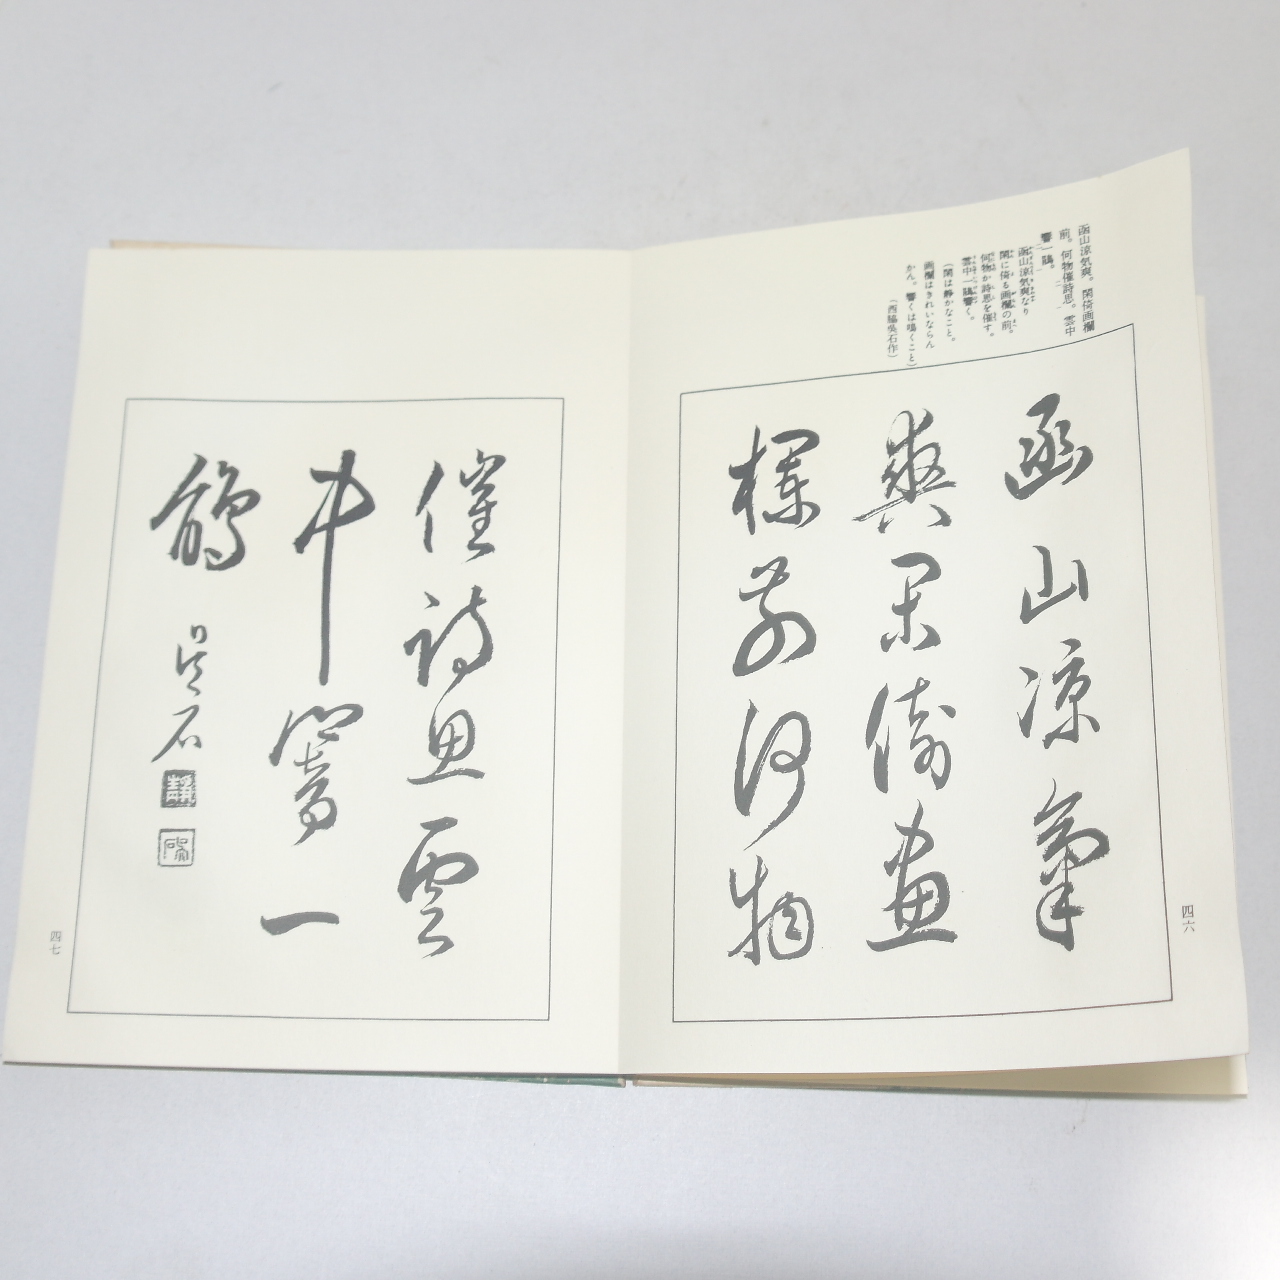 函山涼気爽。閑倚画欄
前。何物催詩思。雲中
響一鵑。
函山涼気爽なり
閑に倚る画欄の前。
何物か詩思を催す。
雲中一鵑響く。
（閑は静かなこと。
画欄はきれいならん
かん。響くは鳴くこと）
（西脇呉石作）
函山涼氣
爽閑倚畫
欄前何物
四六
催詩思雲
中響一
鵑
呉石
四七